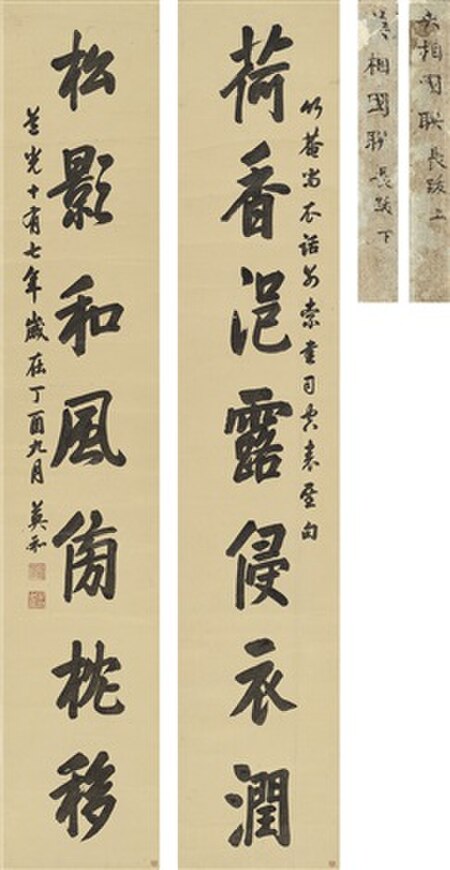 荷香浥露侵衣潤
竹菴尚衣話別索書司空表聖句
松影和風傍枕移
道光十有七年歲在丁酉九月 英和
英相國联長跋上
英相國聨長跋下